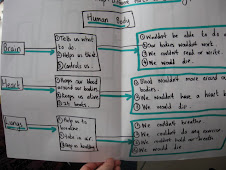 Human Body
Brain
① Tells us what
to do.
② Helps us
③ Controls us.
① Wouldn't be able to do
② Our bodies wouldn't work.
③ We couldn't read or write.
④ We would die.
Heart
① Keeps our blood
around our bodies.
② Keeps us alive
① Blood wouldn't move around our
bodies.
② We wouldn't have a heart
③ We would die.
Lungs
① Help us to
breathe
② Take in air
① We couldn't breathe
② We couldn't do any exercise
③ We couldn't hold our breath
④ We would die.